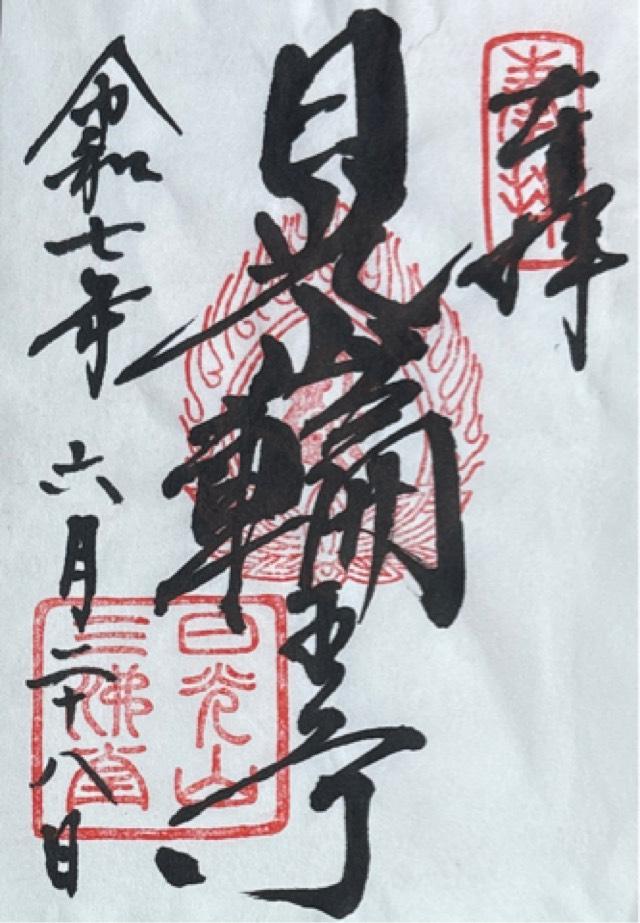 奉拝
日光山輪王寺
令和七年六月二十八日
日光山
三佛堂